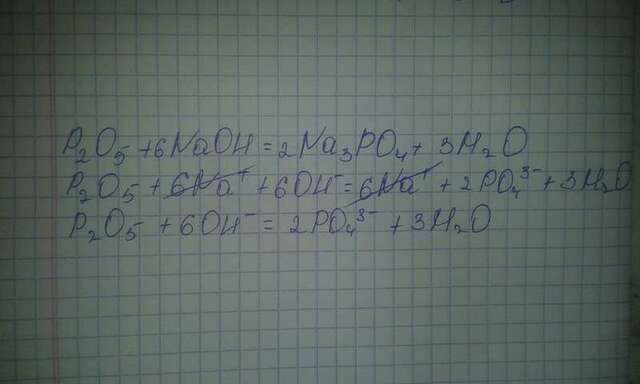 P₂O₅ + 6NaOH = 2Na₃PO₄ + 3H₂O
P₂O₅ + 6Na⁺ + 6OH⁻ = 6Na⁺ + 2PO₄³⁻ + 3H₂O
P₂O₅ + 6OH⁻ = 2PO₄³⁻ + 3H₂O